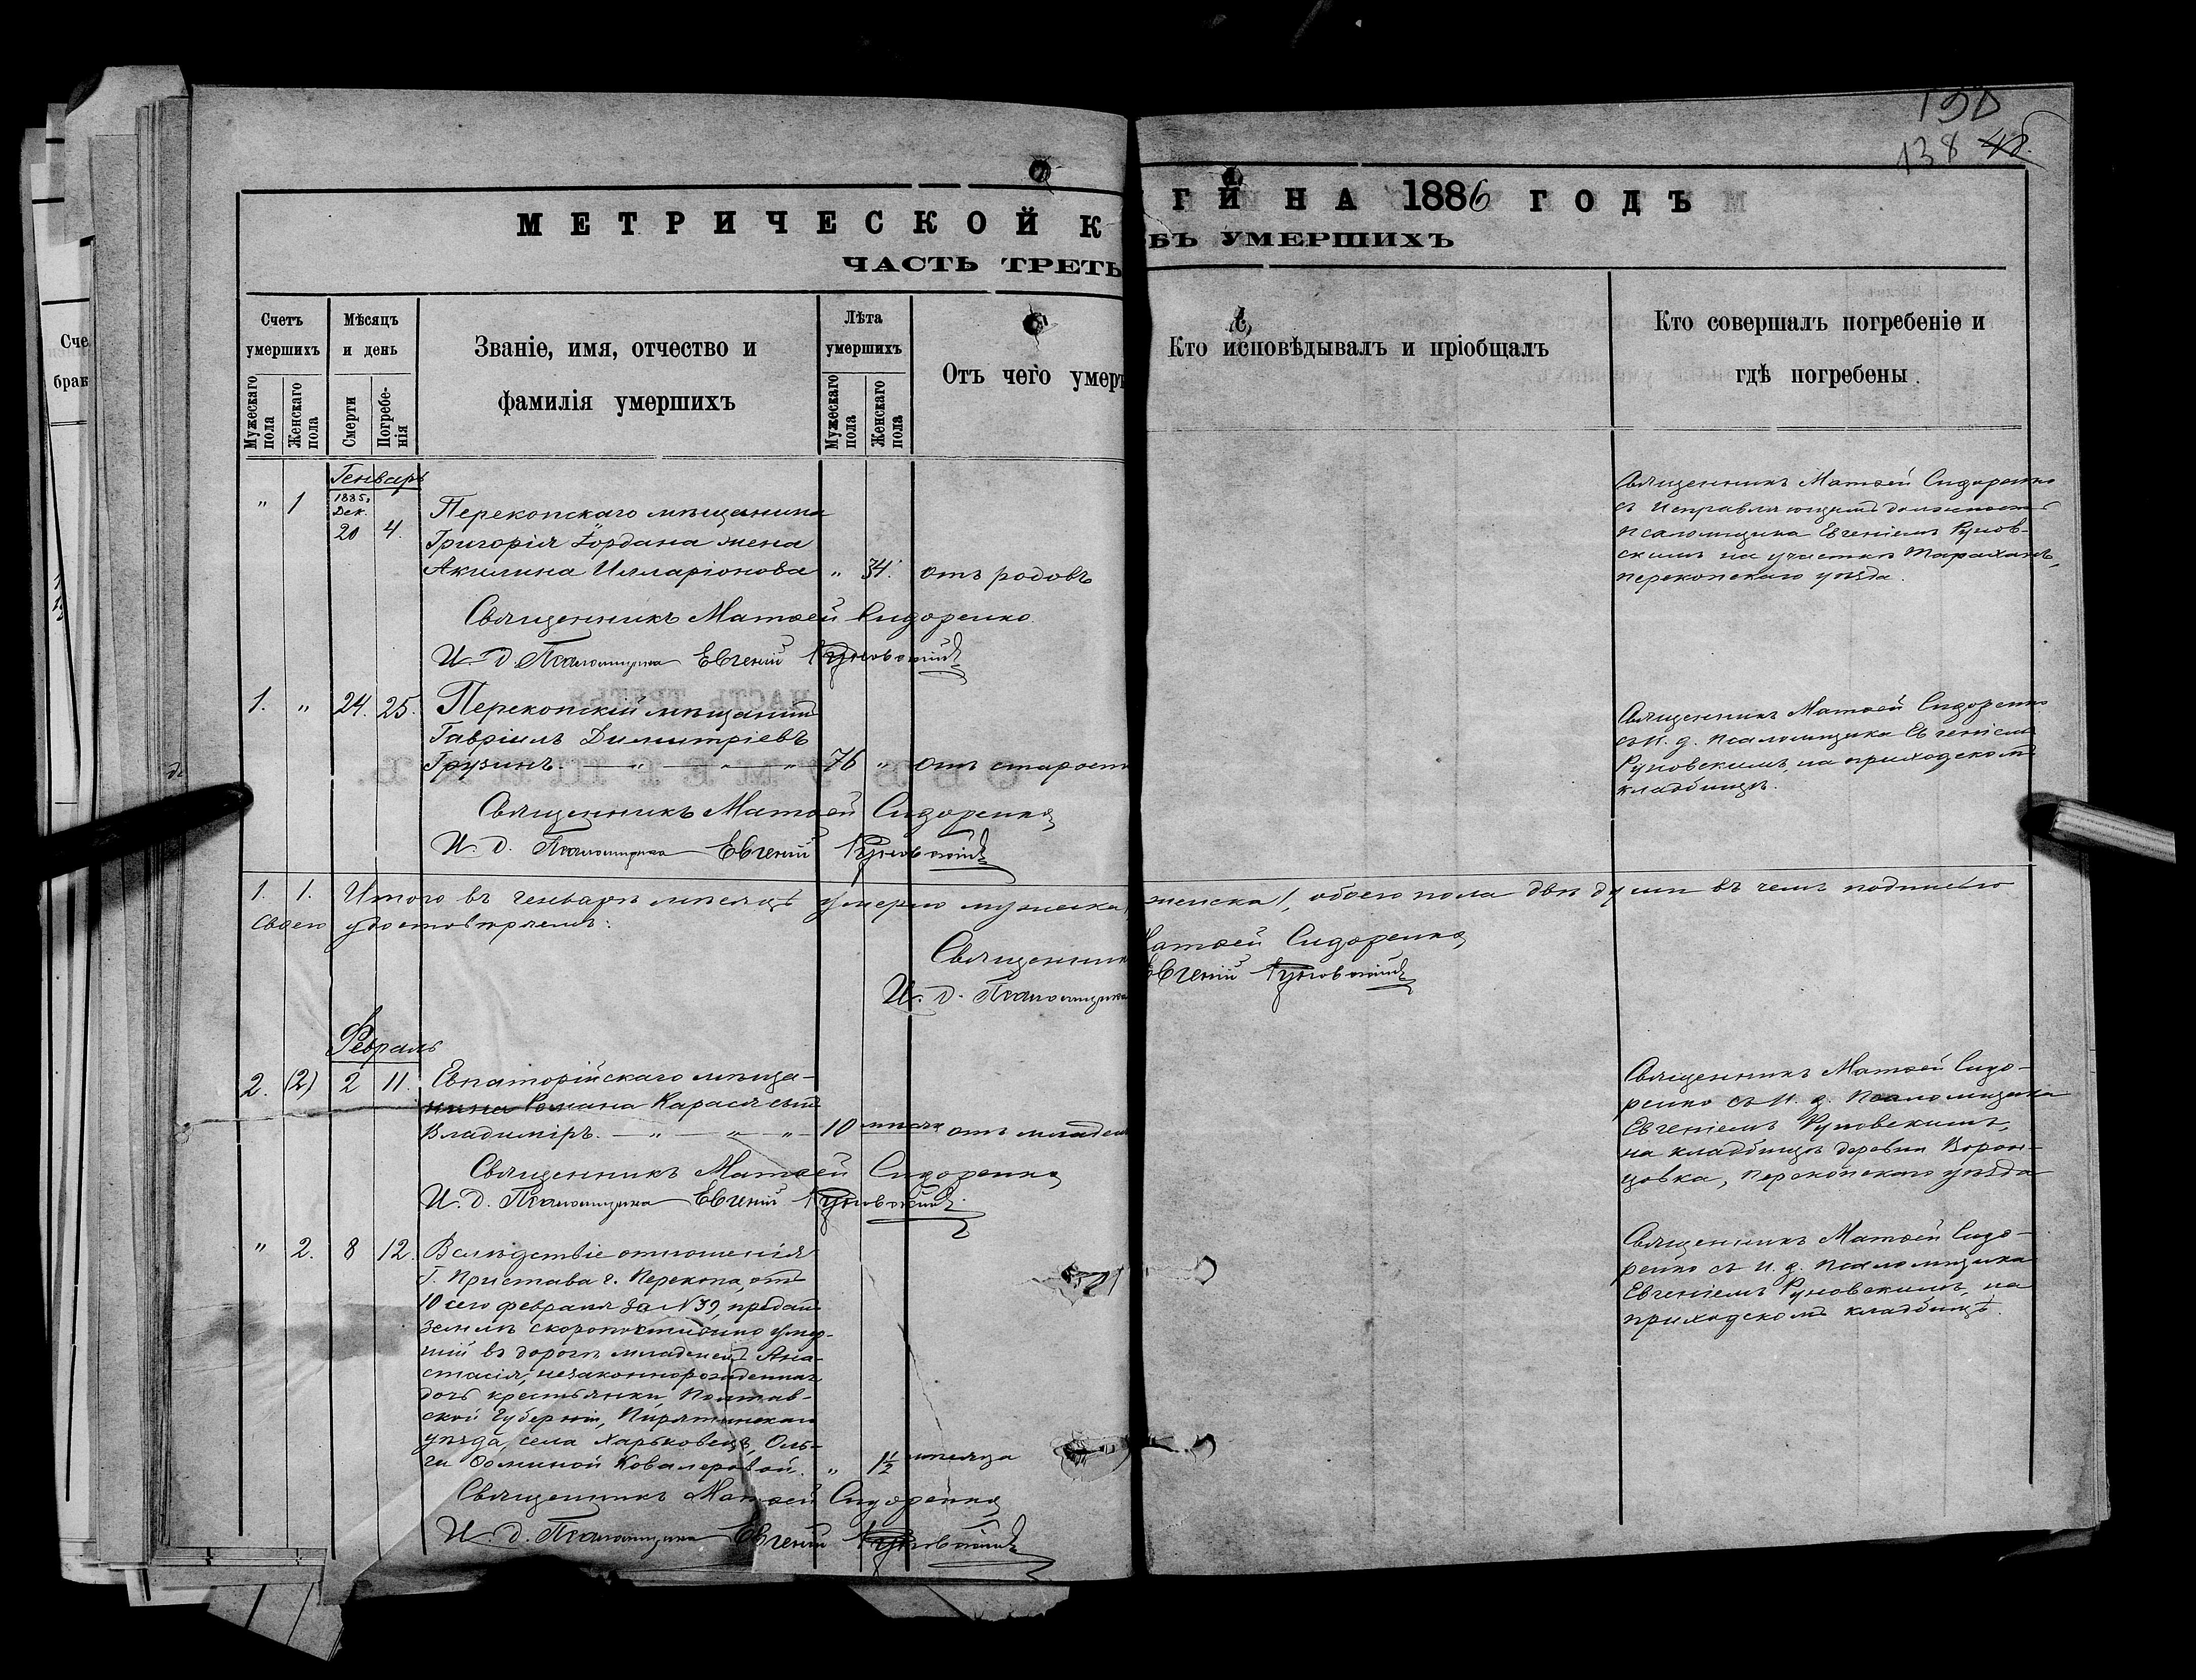 150
138 48.
МЕТРИЧЕСКОЙ К
ГЙ НА 1886 ГОДЪ
ЧАСТЬ ТРЕТЬ
БЪ УМЕРШИХЪ
Счетъ умершихъ
Мѣсяцъ и день
Званіе, имя, отчество и
фамилія умершихъ
Лѣта умершихъ
Отъ чего умер
Кто исповѣдывалъ и пріобщалъ
Кто совершалъ погребеніе и
гдѣ погребены
Мужескаго пола
Женскаго пола
Смерти
Погребенія
Мужескаго пола
Женскаго пола
Сче
брак
Генварь
" 1 1885 Дек. 20 4. Перекопскаго мѣщанина
Григорія Іордана жена
Акилина Илларіонова " 34. отъ родовъ
Священникъ Матѳей Сидоренко
съ исправляющимъ должность
псаломщика Евгеніемъ Рунов-
скимъ на участкѣ Тарханъ,
перекопскаго уѣзда.
Священникъ Матѳей Сидоренко
И. д. Псаломщика Евгеній Руновскій
1. " 24. 25. Перекопскій мѣщанинъ
Гавріилъ Димитріевъ
Грузинъ. — " — " — " — 76 " отъ старости
Священникъ Матѳей Сидоренко
съ И. д. псаломщика Евгеніемъ
Руновскимъ, на приходскомъ
кладбищѣ.
Священникъ Матѳей Сидоренко
И. д. Псаломщика Евгеній Руновскій
1. 1. Итого въ генварѣ мѣсяцѣ умерло мужеска женска 1, обоего пола двѣ души въ чемъ подписью
своею удостовѣряемъ:
Священник Матѳей Сидоренко
И. д. Псаломщика Евгеній Руновскій
Февраль
2. (2) 2 11. Евпаторійскаго мѣща-
нина Романа Карася сынъ
Владиміръ. — " — " — " — 10 мѣсяц отъ младен
Священникъ Матѳей Сидо-
ренко съ И. д. Псаломщика
Евгеніемъ Руновскимъ,
на кладбищѣ деревни Ворон-
цовка, Перекопскаго уѣзда
Священникъ Матѳей Сидоренко
И. д. Псаломщика Евгеній Руновскій
" 2. 8 12. Вслѣдствіе отношенія
Г. Пристава г. Перекопа, отъ
10 сего февраля за №39, преданъ
землѣ скоропостижно умер-
шій въ дорогѣ младенецъ Ана-
стасія, незаконнорожденная
дочь крестьянки, Полтав-
ской Губерніи, Пирятинскаго
уѣзда, села Харьковецъ, Оль-
ги Ѳоминой Ковалеровой. " 1½ мѣсяца
Священникъ Матѳей Сидо-
ренко съ и. д. псаломщика
Евгеніемъ Руновскимъ, на
приходскомъ кладбищѣ.
Священникъ Матѳей Сидоренко
И. д. Псаломщика Евгеній Руновскій